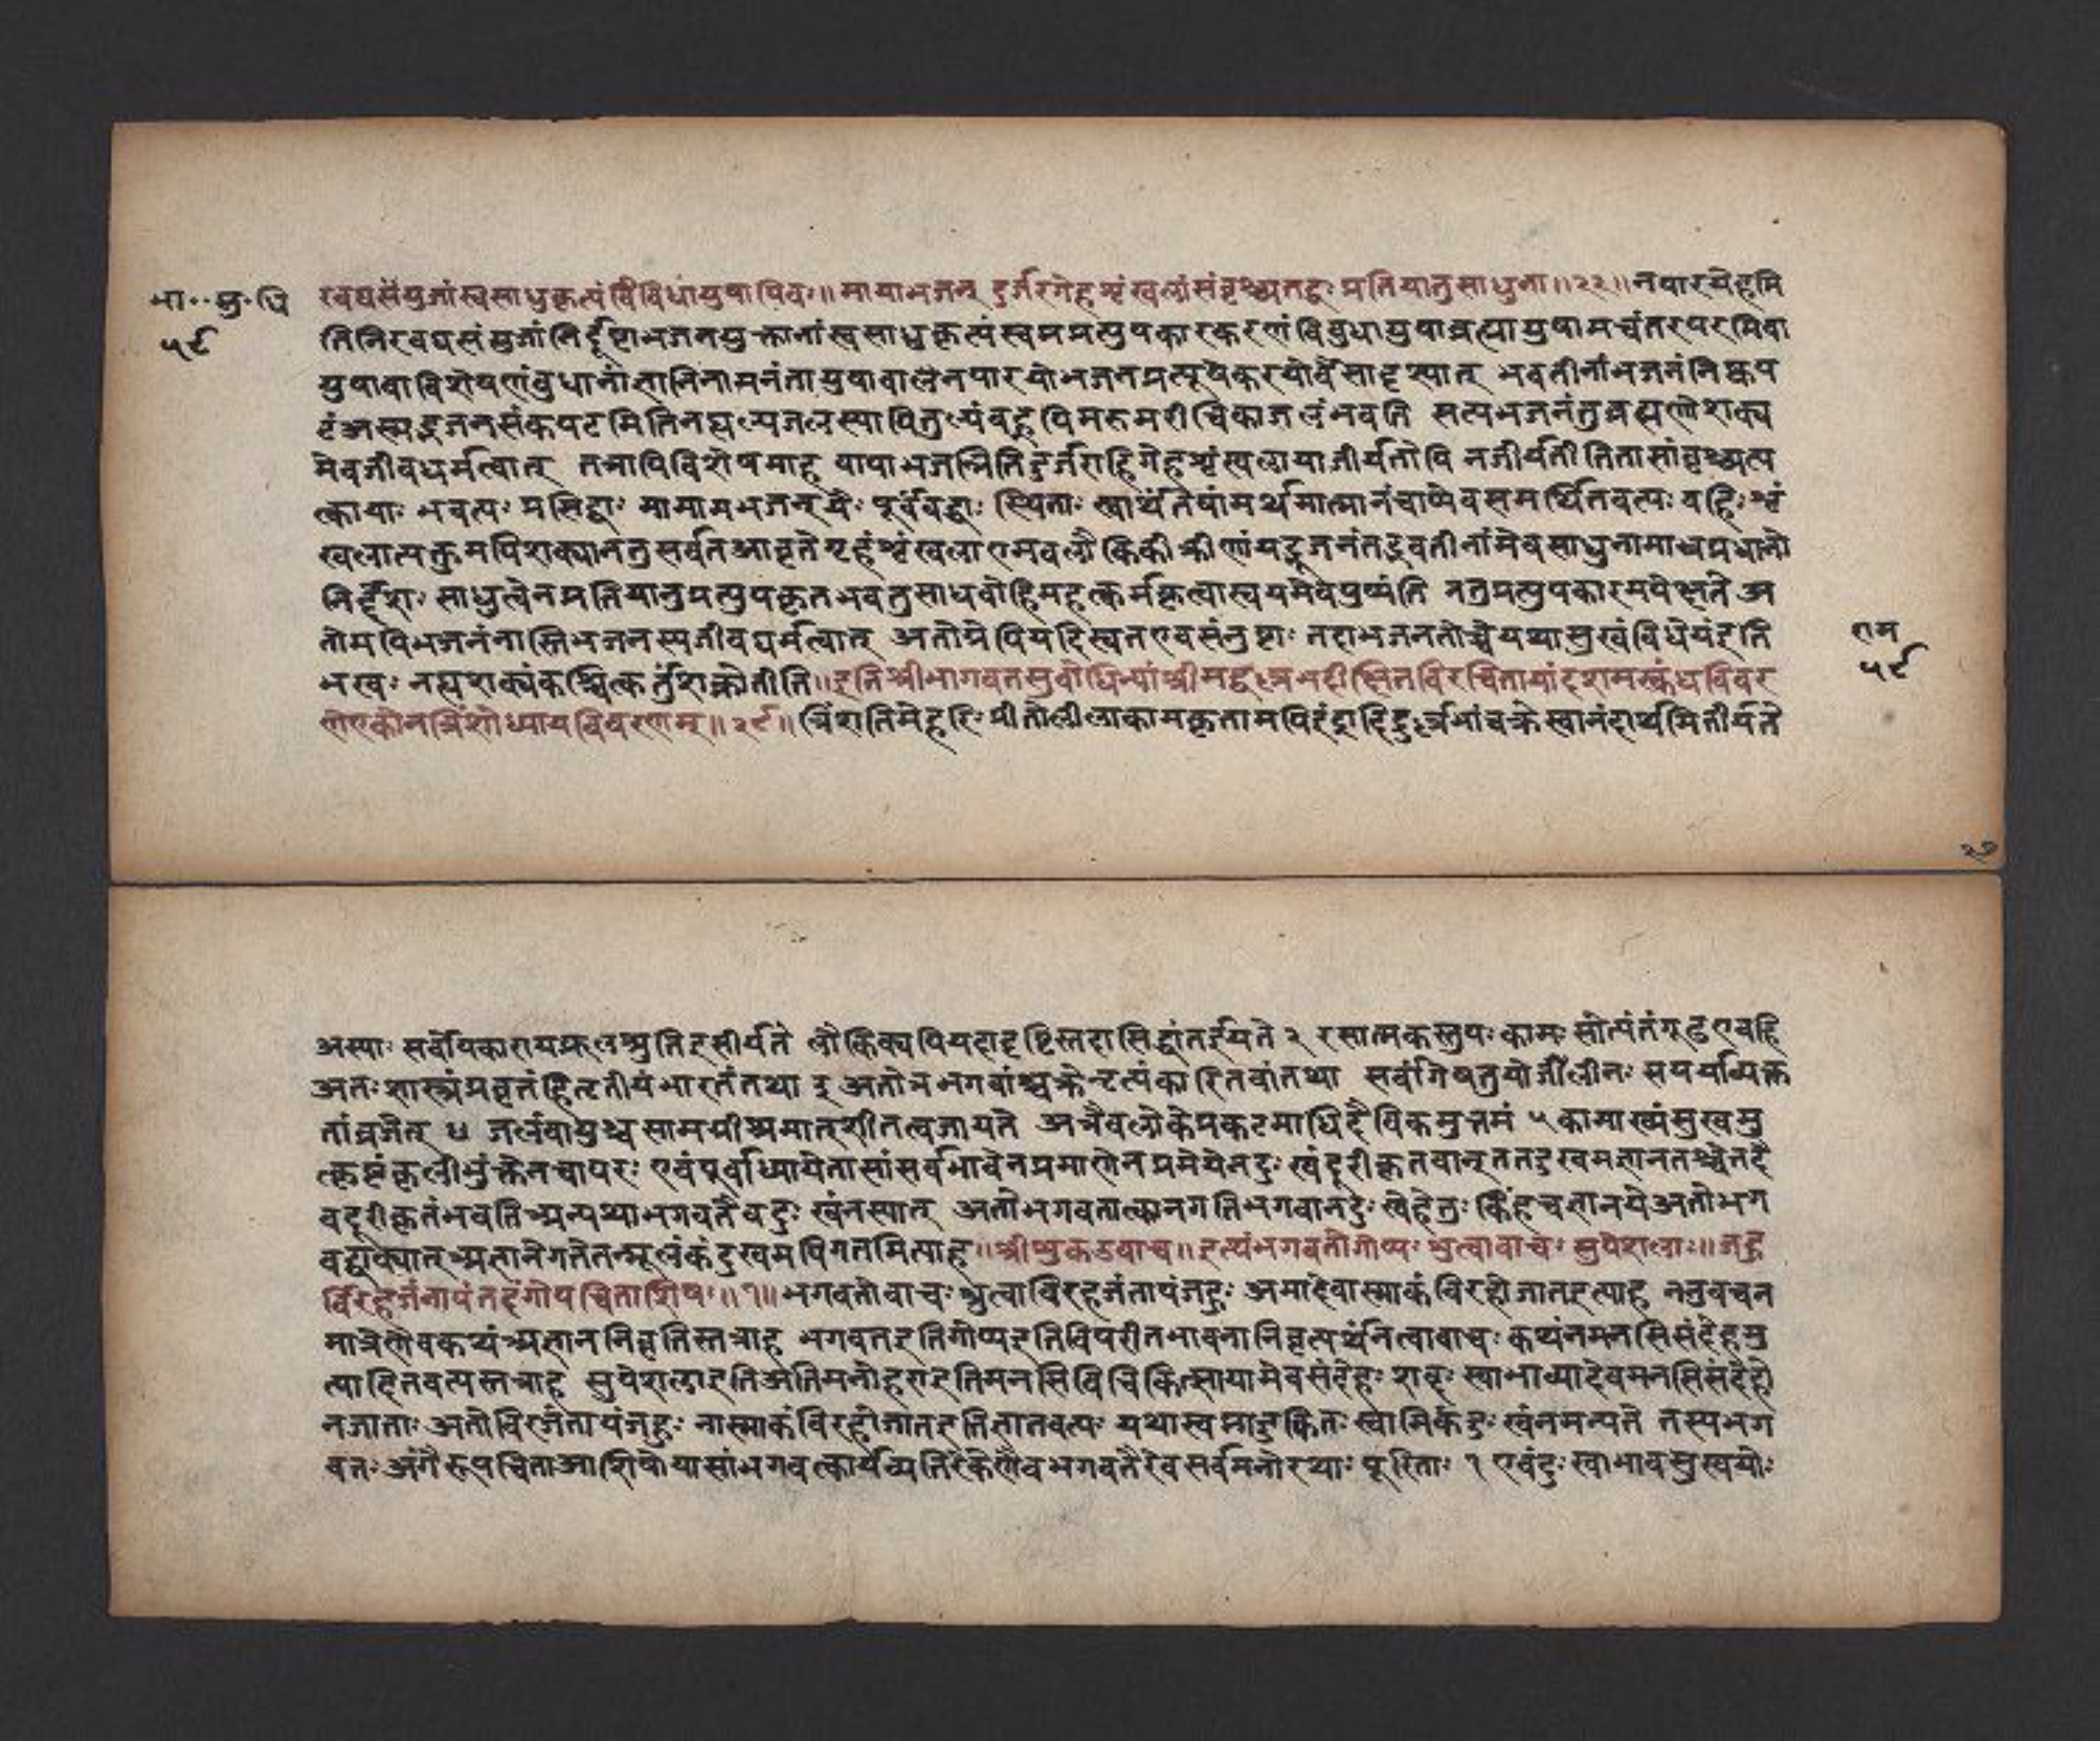 भा॰॰सु॰धि
५९
रवद्यसंयुजांस्वसाधुकृत्यंविविधायुषापिवः॥ मायाभजन् दुर्जरगेहशृंखलांसंवृश्च्यतद्वः प्रतियातुसाधुना॥२२॥नपारयेहमि
तिनिरवद्यसंयुजांनिर्दुष्टाभजनयुक्तानांस्वसाधुकृत्यंस्वमप्रत्युपकारकरणंविबुधायुषाब्रह्मायुषामन्वंतरपरमिवा
युषावाविशेषणंबुधानांज्ञानिनामनंतायुषावालनपारयोभजनप्रत्यूपेकरयोर्वैसादृश्यात् भवतीनांभजनंनिष्कप
टंअस्मद्भजनसंकपटमितिनह्यल्पजलस्यापितुल्यंबहूपिमरुमरीचिकाजलंभवति सत्यभजनंतुब्रह्मणोशक्य
मेवजीवधर्मत्वात् तत्रापिविशेषमाह यामाभजन्नितिदुर्जराहिगेहशृंखलायाजीर्यतोपि नजीर्यतीतितासांवृश्च्यत्य
त्कायाः भवत्यः प्रसिद्धाः मामामभजन्यैः पूर्वंबद्धाः स्थिताः स्वार्थंतेषांमर्थमात्मानंचाप्येवसमर्थितवत्यः बहिः शृं
खलात्यक्तुमपिशक्यानतुसर्वतआवृतेगृहंशृंखलाएमवलौकिकीक्रीणंयद्भजनंतद्भवतीनांमेवसाधुनामाध्वप्रधानो
निर्द्देशः साधुत्वेनप्रतियातुप्रत्युपकृतभवतुसाधवोहिमहत्कर्मकृत्वास्वयमेवपुष्यंति नतुप्रत्युपकारमपेक्षते अ
तोमपिभजनंनास्तिभजनस्यजीवधर्मत्वात् अतोग्रेपियदिस्वतएवसंतुष्टाः तदाभजनतोच्चेयथासुखंविधेयंइति
भावः नह्यशक्यंकश्चित्कर्तुंशक्नोतीति॥इतिश्रीभागवतसुबोधिन्यांश्रीमद्वल्लभदीक्षितविरचितायांदशमस्कंधविवर
णेएकोनत्रिंशोध्यायविवरणम्॥२९॥त्रिंशत्तिमेहरिः प्रीतोलीलाकामकृतामपिइंद्रादिदुर्लभांचक्रेस्वानंदार्थमितीर्यते
राम
५९
२७
अस्याः सर्वोपिकारायफलश्रुतिरसीर्यते लौकिक्यपियदादृष्टिस्तदासिद्धांतर्इयते २ रसात्मकस्तुपः कामः सोत्यंतंगूढएवहि
अतः शास्त्रंप्रवृत्तंहितृतीयंभारतंतथा ३ अतोत्रभगवांश्चक्रेनृत्यंकारितवांतथा सर्वांगेषतुयोर्जीलीनः सपयर्याव्यक्त
तांव्रजेत् ४ जलंवायुश्चसामग्रीअमात्शीतत्वजायते अत्रैवलोकेप्रकटमाधिदैविकमुत्तमं ५ कामाख्यंसुखमु
त्कृष्टंकृलीभुंक्तेनचापरः एवंपूर्वाध्यायेतासांसर्वभावेनप्रमाणेनप्रमेयेनदुः खंदूरीकृतवान्ततदुःखमज्ञानतश्चेतदै
वदूरीकृतंभवतिअन्यथाभगवतैवदुः खंनस्यात् अतोभगवतात्कानगतिभगवानदुः खेहेतुः किंहचज्ञानयेअतोभग
वद्वाक्यात्अज्ञानेगतेतन्मूलंकंदुखमपिगतमित्याह॥श्रीशुकउवाच॥ इत्थंभगवतोगोप्यः श्रुत्वावाचः सुपेशलाः॥जहु
र्विरहजंनापंतदंगोपचिताशिषः॥१॥भगवतोवाचः श्रुत्वाविरहजंतापंजहुः अमादेवास्माकंविरहोजातइत्याह ननुवचन
मात्रेणैवकथंअज्ञाननिवृतिस्तत्राह भगवतइतिगोप्यइतिविपरीतभावनानिवृत्यर्थंनित्वावाचः कथंनमनसिसंदेहमु
त्पादितवत्यस्तत्राह सुपेशलाइतिअतिमनोहराइतिमनसिविचिकित्सायामेवसंदेहः शब्दः स्वाभाव्यादेवमनसिसंदेहो
नजाताः अतोविरजंतापंजहुः नास्माकंविरहोजातइतिज्ञातवत्यः यथास्वप्नादुत्थितः स्वामिकंदुः खंनमन्यते तस्यभग
वतः अंगैरूपचिताआशिषोयासांभगवत्कार्यव्यतिरेकेणैवभगवतैरेवसर्वमनोरथाः पूरिताः १ एवंदुः खाभावसुखयोः